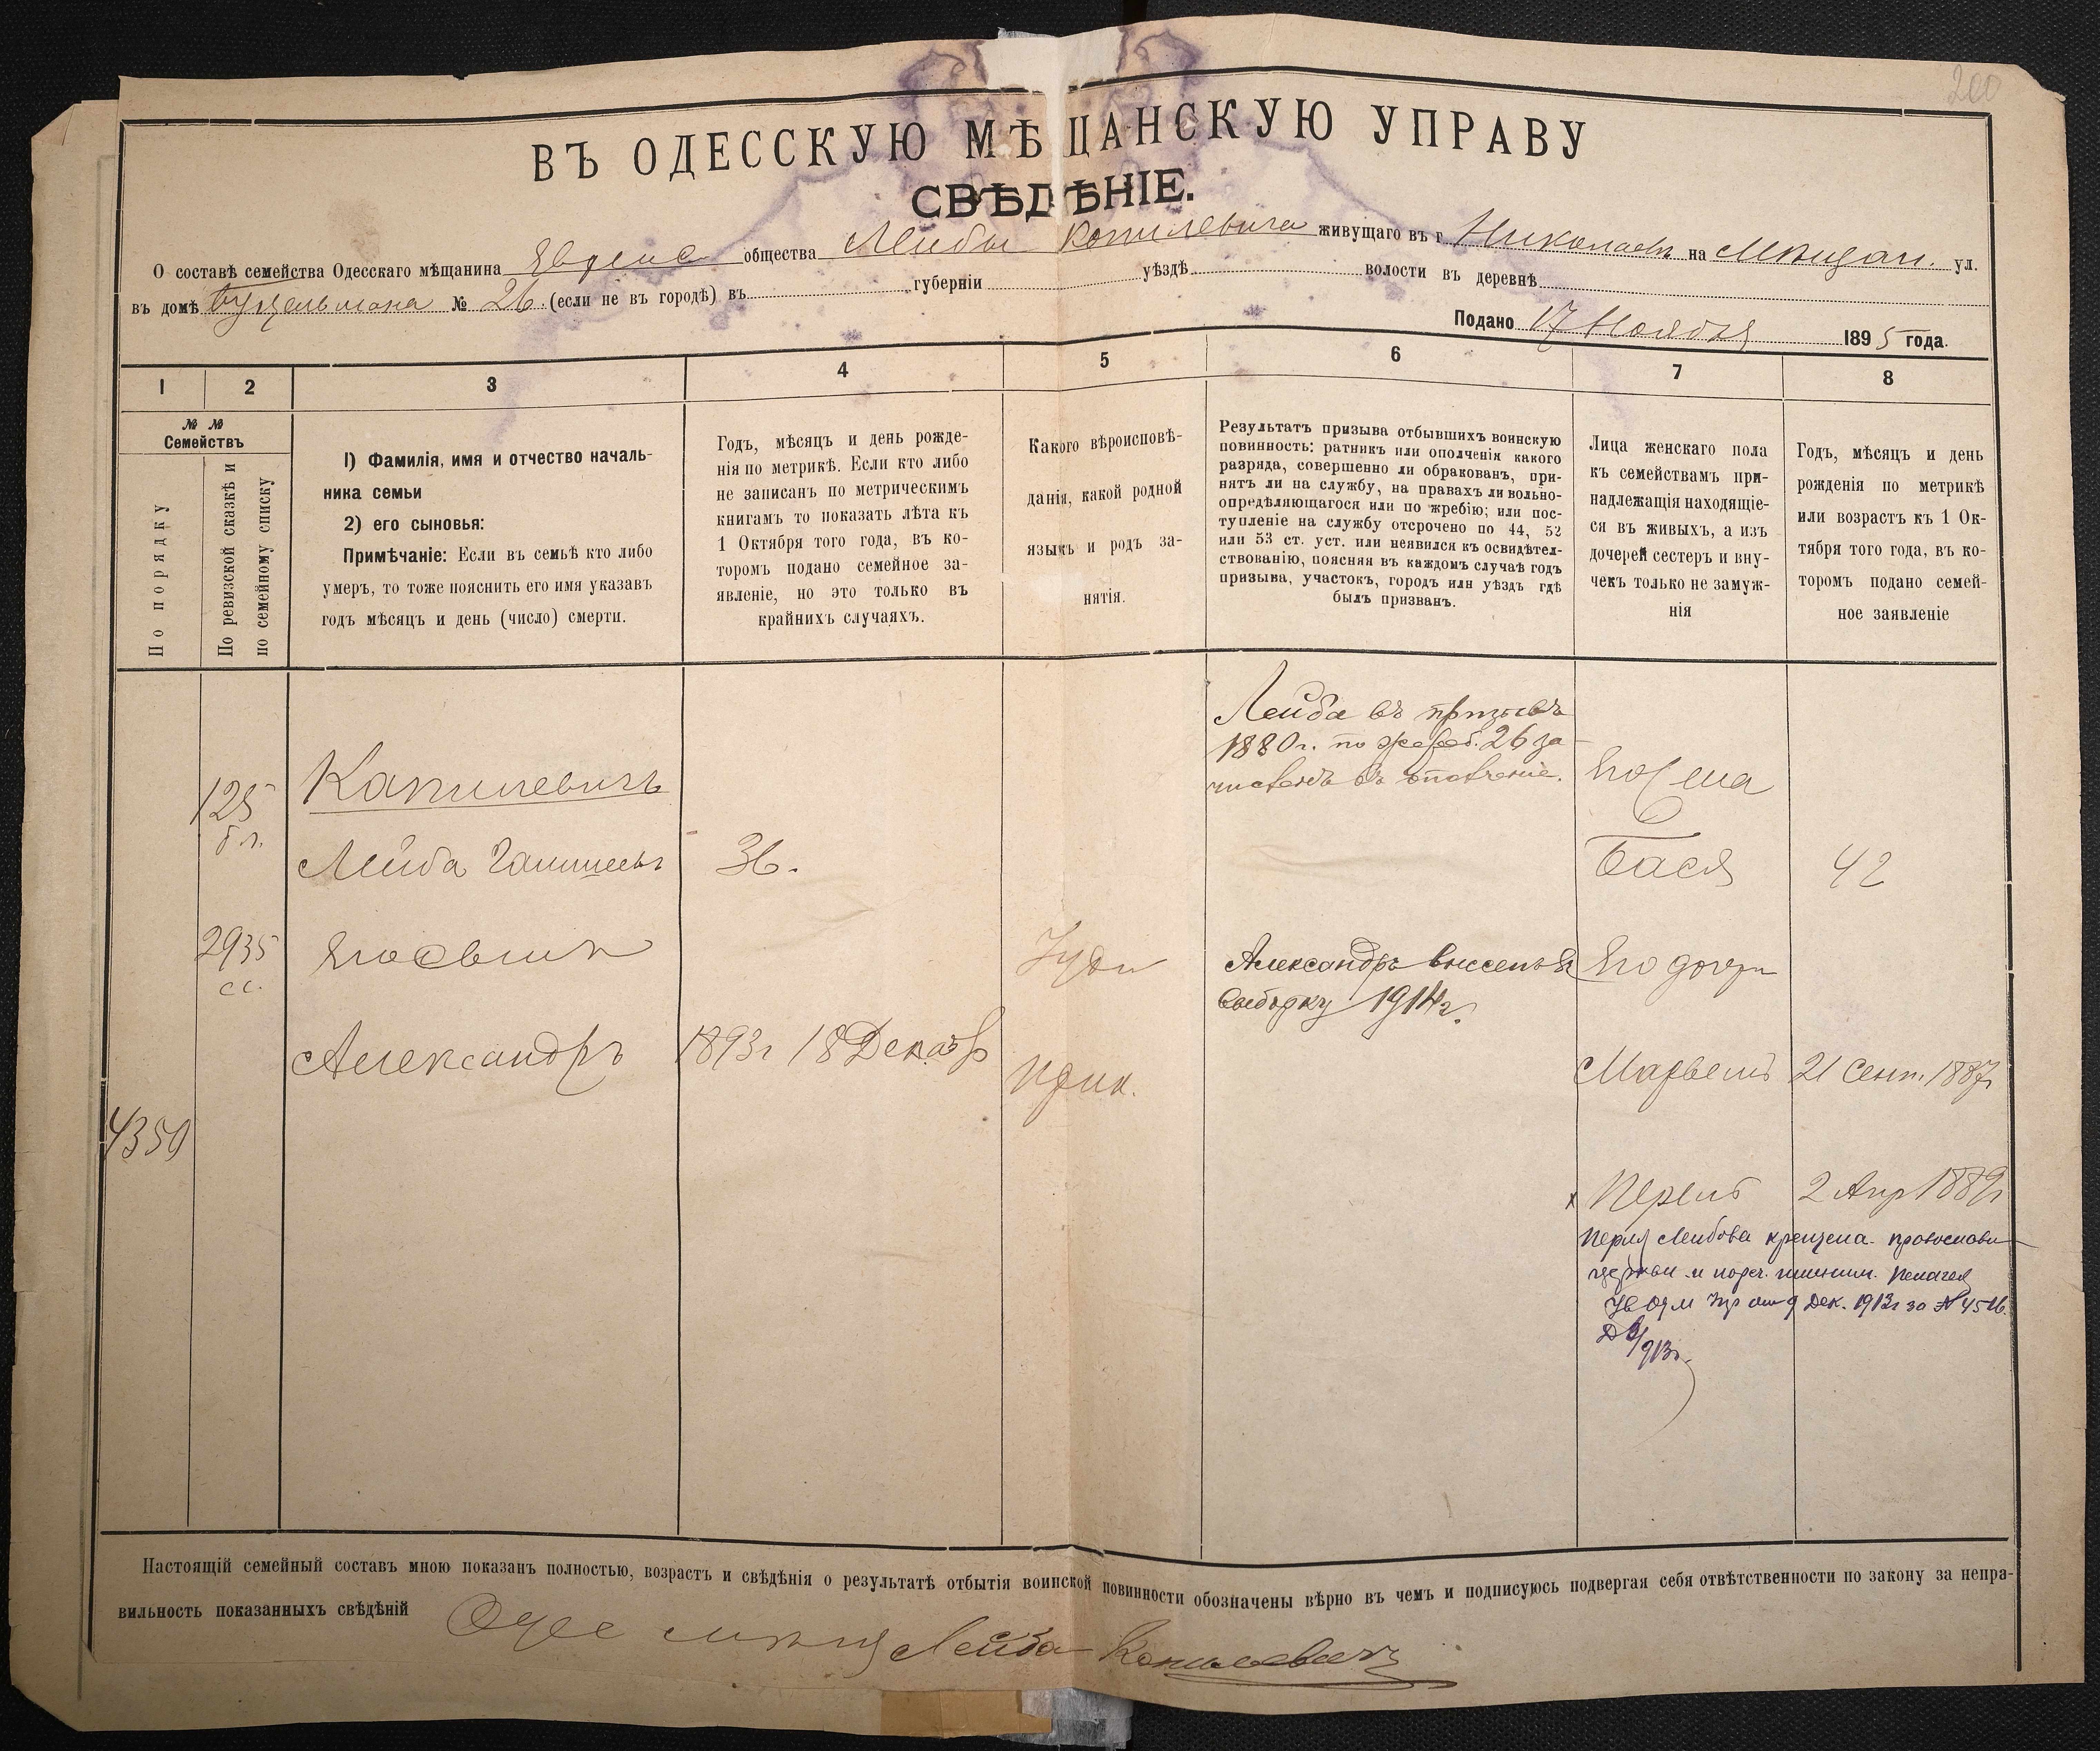 200
ВЪ ОДЕССКУЮ МѢЩАНСКУЮ УПРАВУ
СВѢДѢНІЕ.
О составѣ семейства Одесскаго мѣщанина Евреис общества Лейбы Копилевича живущаго въ г. Николаевѣ на Мѣщан. ул.
въ домѣ № 26. (если не въ городѣ) въ губерніи уѣздѣ волости въ деревнѣ
Подано 17 Ноября 1895 года.
1 2 3 4 5 6 7 8
№ № Семействъ
По порядку
По ревизской сказкѣ и по семейному списку
1) Фамилія, имя и отчество началь-
ника семьи
2) его сыновья:
Примѣчаніе: Если въ семьѣ кто либо
умеръ, то тоже пояснить его имя указавъ
годъ мѣсяцъ и день (число) смерти.
Годъ, мѣсяцъ и день рожде-
нія по метрикѣ. Если кто либо
не записанъ по метрическимъ
книгамъ то показать лѣта къ
1 Октября того года, въ ко-
торомъ подано семейное за-
явленіе, но это только въ
крайнихъ случаяхъ.
Какого вѣроисповѣ-
данія, какой родной
языкъ и родъ за-
нятія.
Результатъ призыва отбывшихъ воинскую
повинность: ратникъ или ополченія какого
разряда, совершенно ли обракованъ, при-
нятъ ли на службу, на правахъ ли вольно-
опредѣляющагося или по жребію; или пос-
тупленіе на службу отсрочено по 44, 52
или 53 ст. уст. или неявился къ освидѣтел-
ствованію, поясняя въ каждомъ случаѣ годъ
призыва, участокъ, городъ или уѣздъ гдѣ
былъ призванъ.
Лица женскаго пола
къ семействамъ при-
надлежащія находящіе-
ся въ живыхъ, а изъ
дочерей сестеръ и вну-
чекъ только не замуж-
нія
Годъ, мѣсяцъ и день
рожденія по метрикѣ
или возрастъ къ 1 Ок-
тября того года, въ ко-
торомъ подано семей-
ное заявленіе
Лейба въ призывъ
1880 г. по жереб. 26 за-
численъ въ ополченіе.
125
Капилевичъ
Его жена
Лейба 36.
Бася 42
2935
с с.
Его сынъ
Іуди
Александръ внесенъ въ
выборку 1914 г.
Его дочери
Александръ 1893 г 18 Декабр
Марвель 21 Сент. 1887 г
4350
х Перель 2 Апр 1889 г
Перля Лейбова крещена православн
церкви и нареч. именем. Пелагея
от 9 Дек. 1913 г за №
913 г.
Настоящій семейный составъ мною показанъ полностью, возрастъ и свѣдѣнія о результатѣ отбытія воинской повинности обозначены вѣрно въ чемъ и подписуюсь подвергая себя отвѣтственности по закону за непра-
вильность показанныхъ свѣдѣній Одес мѣщ Лейба Копилевичъ